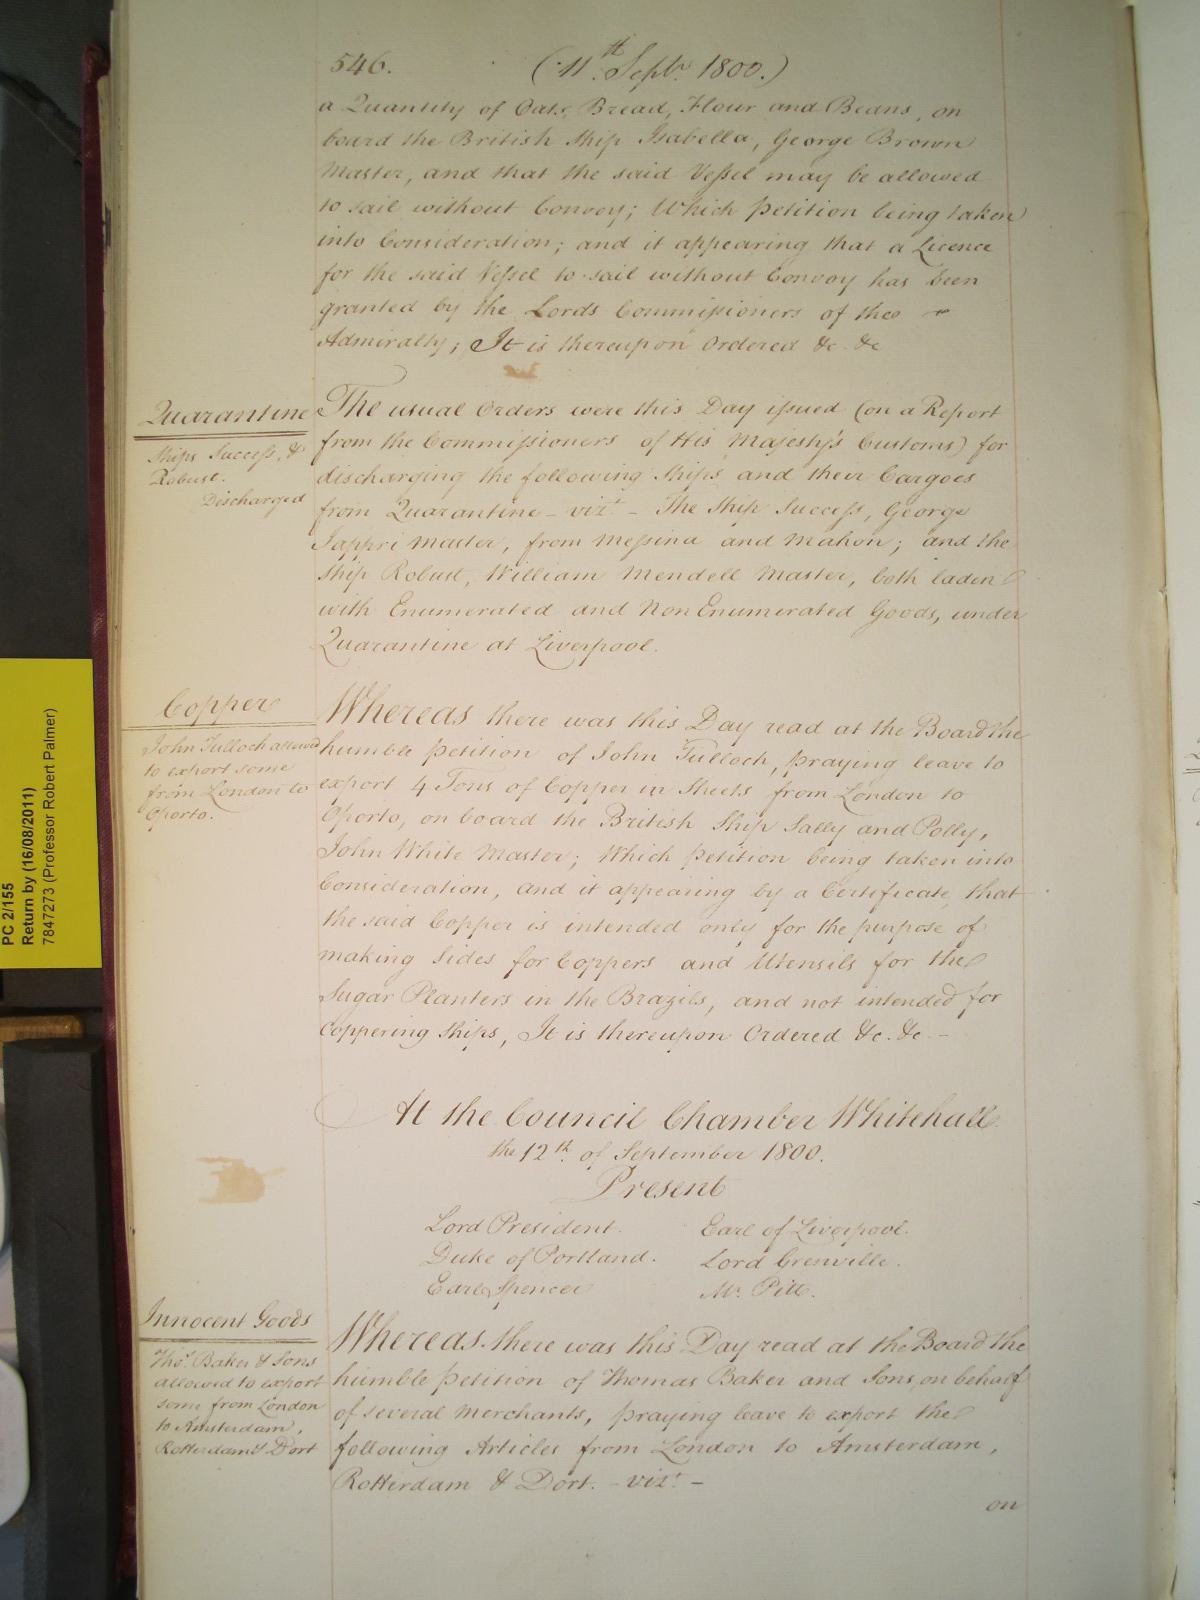 546. (11th Septr. 1800.)
a Quantity of Oats, Bread, Flour and Beans, on
board the British Ship Isabella, George Brown
Master, and that the said Vessel may be allowed
to sail without Convoy; Which Petition being taken
into Consideration; and it appearing that a Licence
for the said Vessel to sail without Convoy has been
granted by the Lords Commissioners of the
Admiralty; It is thereupon Ordered &c. &c
Quarantine
Ships Success, &
Robust.
Discharged
The usual Orders were this Day issued (on a Report
from the Commissioners of His Majesty's Customs) for
discharging the following Ships and their Cargoes
from Quarantine – vizt. – The Ship Success, George
Master, from Messina and Mahon; and the
Ship Robust, William Mendell Master, both laden
with Enumerated and Non Enumerated Goods, under
Quarantine at Liverpool.
Copper
John Tulloch allowed
to export some
from London to
Oporto.
Whereas there was this Day read at the Board the
humble Petition of John Tulloch, praying leave to
export 4 Tons of Copper in Sheets from London to
Oporto, on board the British Ship Sally and Polly,
John White Master; Which Petition being taken into
Consideration, and it appearing by a Certificate, that
the said Copper is intended only for the purpose of
making Sides for Coppers and Utensils for the
Sugar Planters in the Brazils, and not intended for
Coppering Ships, It is thereupon Ordered &c. &c. –
At the Council Chamber Whitehall
the 12th. of September 1800.
Present
Lord President. Earl of Liverpool.
Duke of Portland. Lord Grenville.
Earl Spencer Mr. Pitt.
Innocent Goods
Thos. Baker & Sons
allowed to export
some from London
to Amsterdam,
Rotterdam & Dort
Whereas there was this Day read at the Board the
humble Petition of Thomas Baker and Sons, on behalf
of several Merchants, praying leave to export the
following Articles from London to Amsterdam,
Rotterdam & Dort. – vizt. –
on
PC 2/155
Return by (16/08/2011)
7847273 (Professor Robert Palmer)